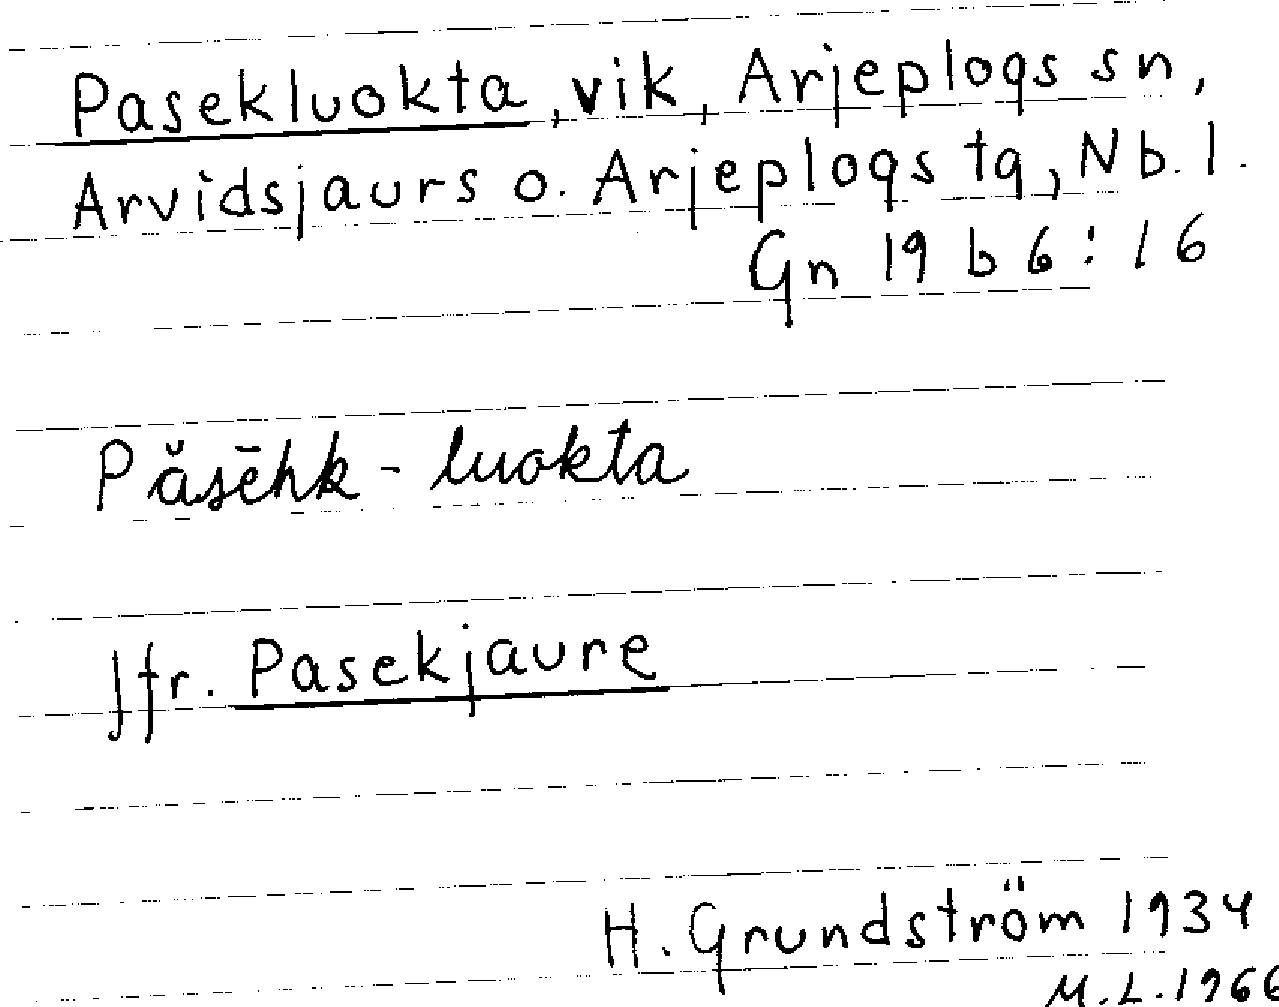 Pasekluokta, vik, Arjeplogs sn,
Arvidsjaurs o. Arjeplogs tg, Nb. l.
Gn 19 b 6:16
Påsēhk - luokta
Jfr. Pasekjaure
H. Grundström 1934
M.L. 1966